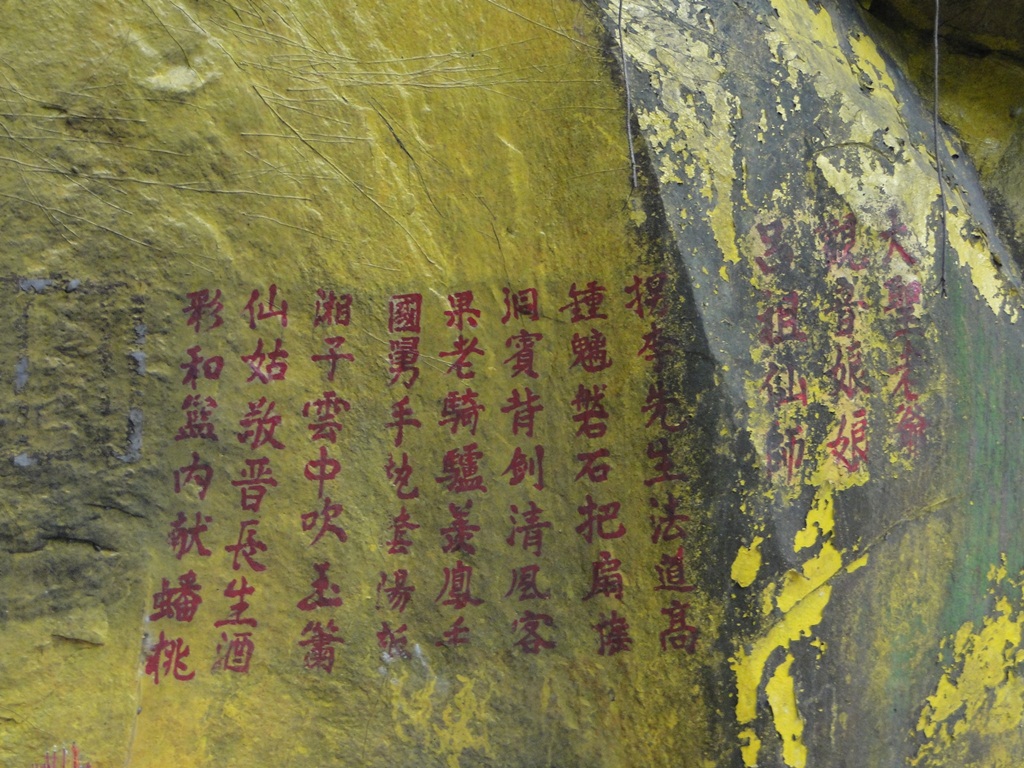 大聖爺
觀音娘娘
呂祖仙師
李先生法道高
鍾磐石把扇
洞賓背劍清風客
果老騎驢羨鳳毛
國舅手执套湯板
湘子雲中吹玉簫
仙姑敬晉長生酒
彩和籃内献蟠桃